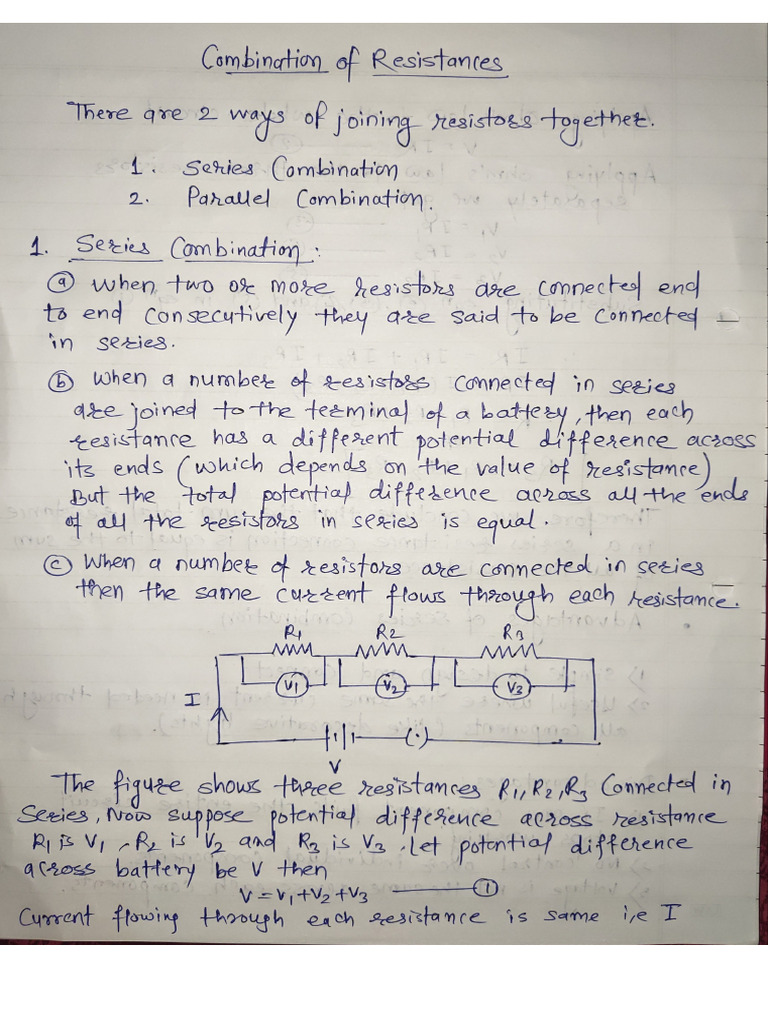 Combination of Resistances
There are 2 ways of joining resistors together.
1. Series Combination
2. Parallel Combination.
1. Series Combination:
ⓐ When two or more resistors are connected end
to end consecutively they are said to be connected
in series.
ⓑ When a number of resistors connected in series
are joined to the terminal of a battery, then each
resistance has a different potential difference across
its ends (which depends on the value of resistance)
But the total potential difference across all the ends
of all the resistors in series is equal.
ⓒ When a number of resistors are connected in series
then the same current flows through each resistance.
R1 R2 R3
V1 V2 V3
I
V
The figure shows three resistances R1, R2, R3 Connected in
Series, Now suppose potential difference across resistance
R1 is V1, R2 is V2 and R3 is V3. Let potential difference
across battery be V then
V = V1 + V2 + V3 ①
Current flowing through each resistance is same i,e I